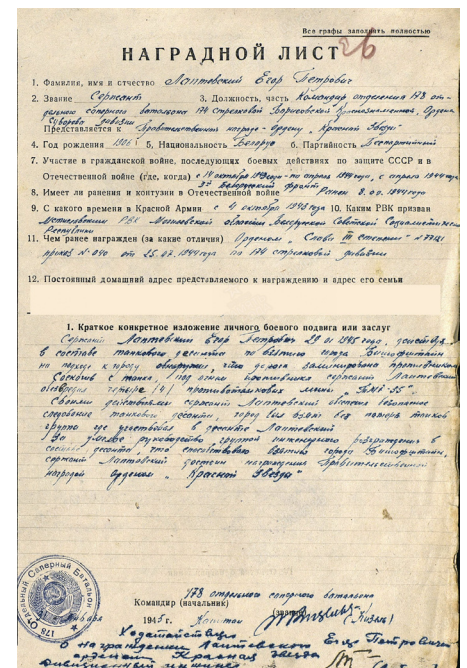 Все графы заполнить полностью
26
НАГРАДНОЙ ЛИСТ
1. Фамилия, имя и отчество Лаптевский Егор Петрович
2. Звание Сержант 3. Должность, часть Командир отделения 178 от-
дельного саперного батальона 174 стрелковой Борисовской Краснознаменной, Ордена
Суворова дивизии
Представляется к Правительственной награде - Ордену "Красной Звезды"
4. Год рождения 1905 5. Национальность Белорус 6. Партийность Беспартийный
7. Участие в гражданской войне, последующих боевых действиях по защите СССР и в
Отечественной войне (где, когда) с 14 октября по апрель 1944 года, с апреля 1944 года
3й Белорусский фронт
8. Имеет ли ранения и контузии в Отечественной войне Ранен 8.07.1944 года
9. С какого времени в Красной Армии с 4 октября 1943 года 10. Каким РВК призван
Мстиславским РВК Могилевской области Белорусской Советской Социалистической
Республики
11. Чем ранее награжден (за какие отличия) Орденом "Слава III степени"
приказ № 040 от 25.07.1944 года по 174 стрелковой дивизии
12. Постоянный домашний адрес представляемого к награждению и адрес его семьи
1. Краткое конкретное изложение личного боевого подвига или заслуг
Сержант Лаптевский Егор Петрович 29 01 1945 года, действуя
в составе танкового десанта по взятию города Бишофштайн
на подходе к городу обнаружил, что дорога заминирована противником
Соскочив с танка, под огнем противника сержант Лаптевский
обезвредил четыре /4/ противотанковых мины "ТМi-35".
Своими действиями сержант Лаптевский обеспечил безопасное
следование танкового десанта, город был взят без потерь танков
группы где участвовал в десанте Лаптевский
За умелое руководство группой инженерного разграждения в
составе десанта, что способствовало взятию города Бишофштайн,
сержант Лаптевский достоин награждения Правительственной
наградой Орденом "Красной Звезды"
178 отдельного саперного батальона
Командир (начальник)
(звание)
января 1945 г. Капитан (Кизыл)
178 Отдельный Саперный Батальон
Ходатайствую
о награждении Лаптевского Егора Петровича
орденом Красная Звезда
Дивизионный инженер